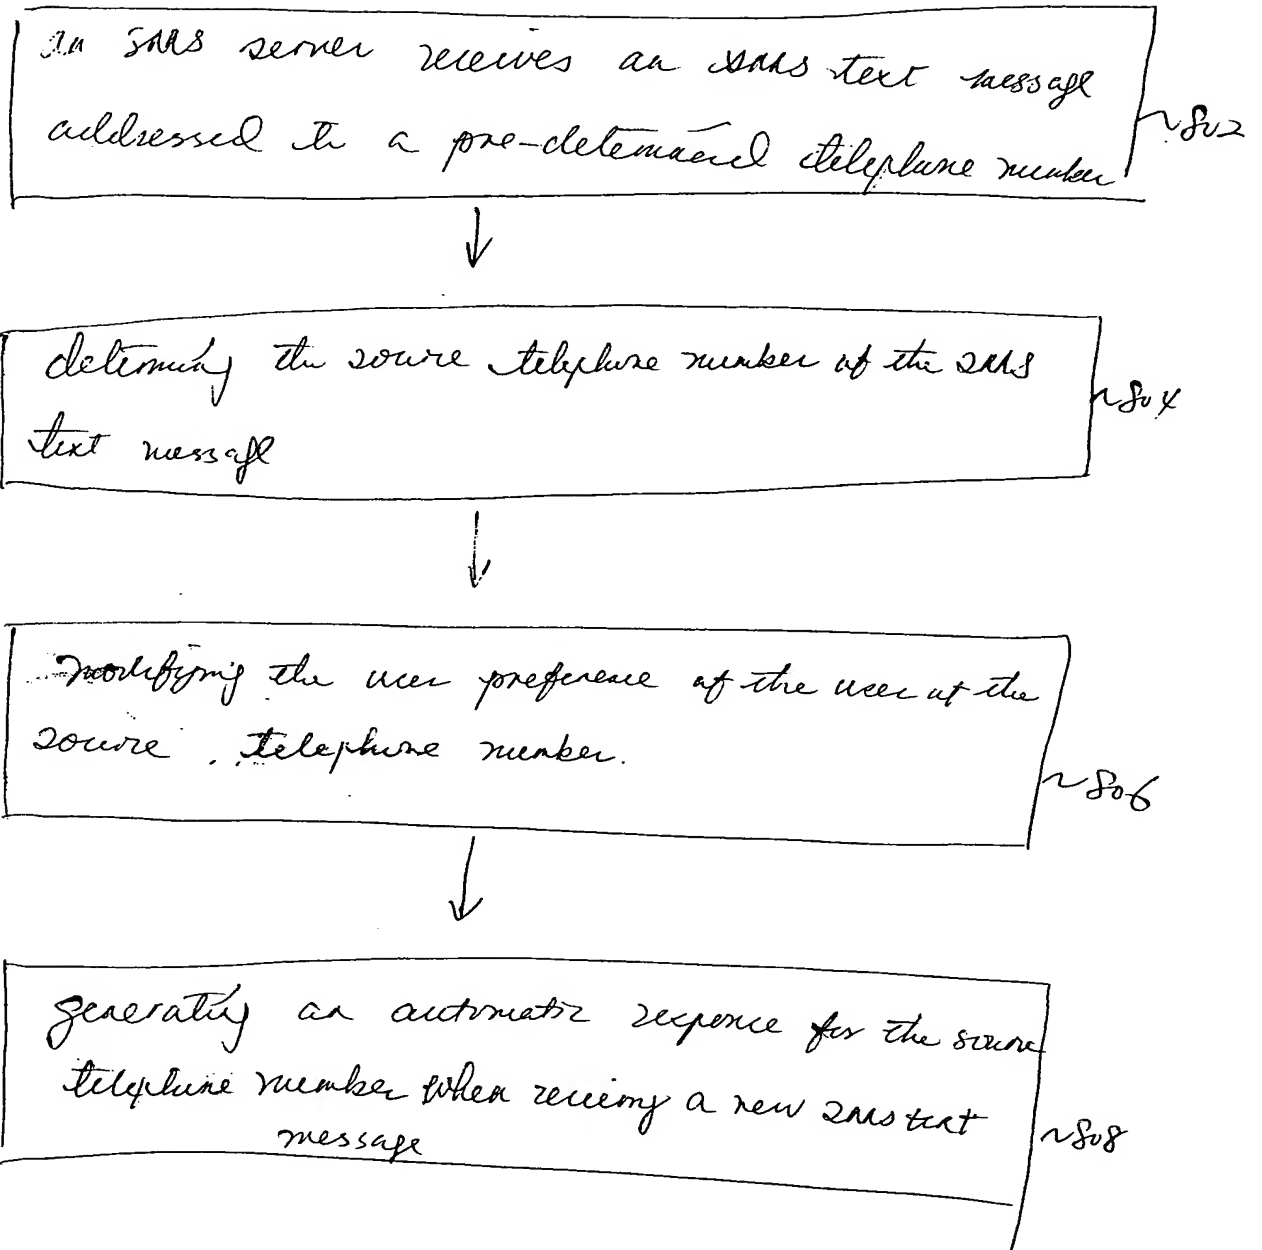 an SMS server receives an SMS text message
addressed to a pre-determined telephone number
~802
determining the source telephone number of the SMS
~804
text message
modifying the user preference of the user at the
source telephone number.
~806
generating an automatic response for the source
telephone number when receiving a new SMS text
message
~808